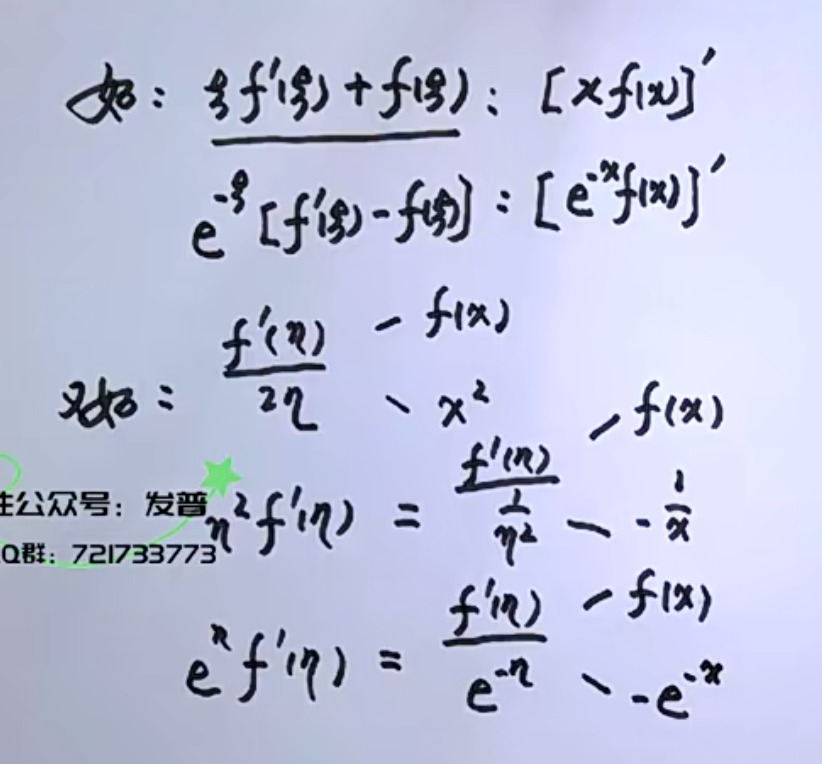 如: ξf'(ξ)+f(ξ): [xf(x)]'
e^{-ξ}[f'(ξ)-f(ξ)]: [e^{-x}f(x)]'
又如: f'(η)/2η — f(x) 、 x²
η²f'(η) = f'(η)/(1/η²) — f(x) — -1/x
e^η f'(η) = f'(η)/e^{-η} — f(x) 、 -e^{-x}
注公众号:发普
Q群:721733773